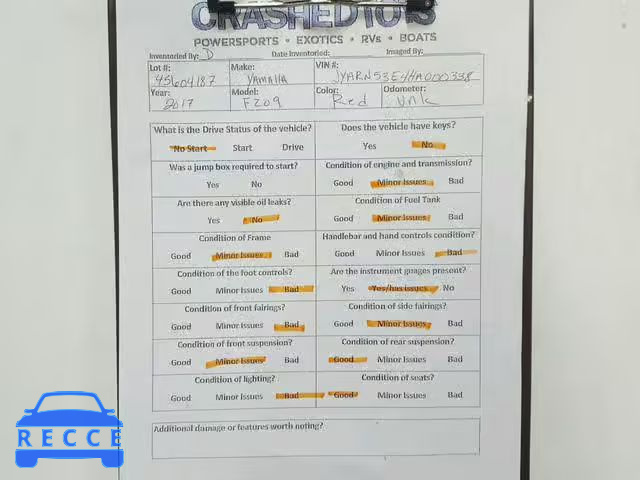 CRASHEDTOYS
POWERSPORTS • EXOTICS • RVs • BOATS
Inventoried By: D Date Inventoried: Imaged By:
Lot #: Make: VIN #:
45604187 YAMAHA JYARN53E4HA000338
Year: Model: Color: Odometer:
2017 FZ09 Red Unk
What is the Drive Status of the vehicle? Does the vehicle have keys?
No Start Start Drive Yes No
Was a jump box required to start? Condition of engine and transmission?
Yes No Good Minor Issues Bad
Are there any visible oil leaks? Condition of Fuel Tank
Yes No Good Minor Issues Bad
Condition of Frame Handlebar and hand controls condition?
Good Minor Issues Bad Good Minor Issues Bad
Condition of the foot controls? Are the instrument gauges present?
Good Minor Issues Bad Yes Yes/has issues No
Condition of front fairings? Condition of side fairings?
Good Minor Issues Bad Good Minor Issues Bad
Condition of front suspension? Condition of rear suspension?
Good Minor Issues Bad Good Minor Issues Bad
Condition of lighting? Condition of seats?
Good Minor Issues Bad Good Minor Issues Bad
Additional damage or features worth noting?
RECCE